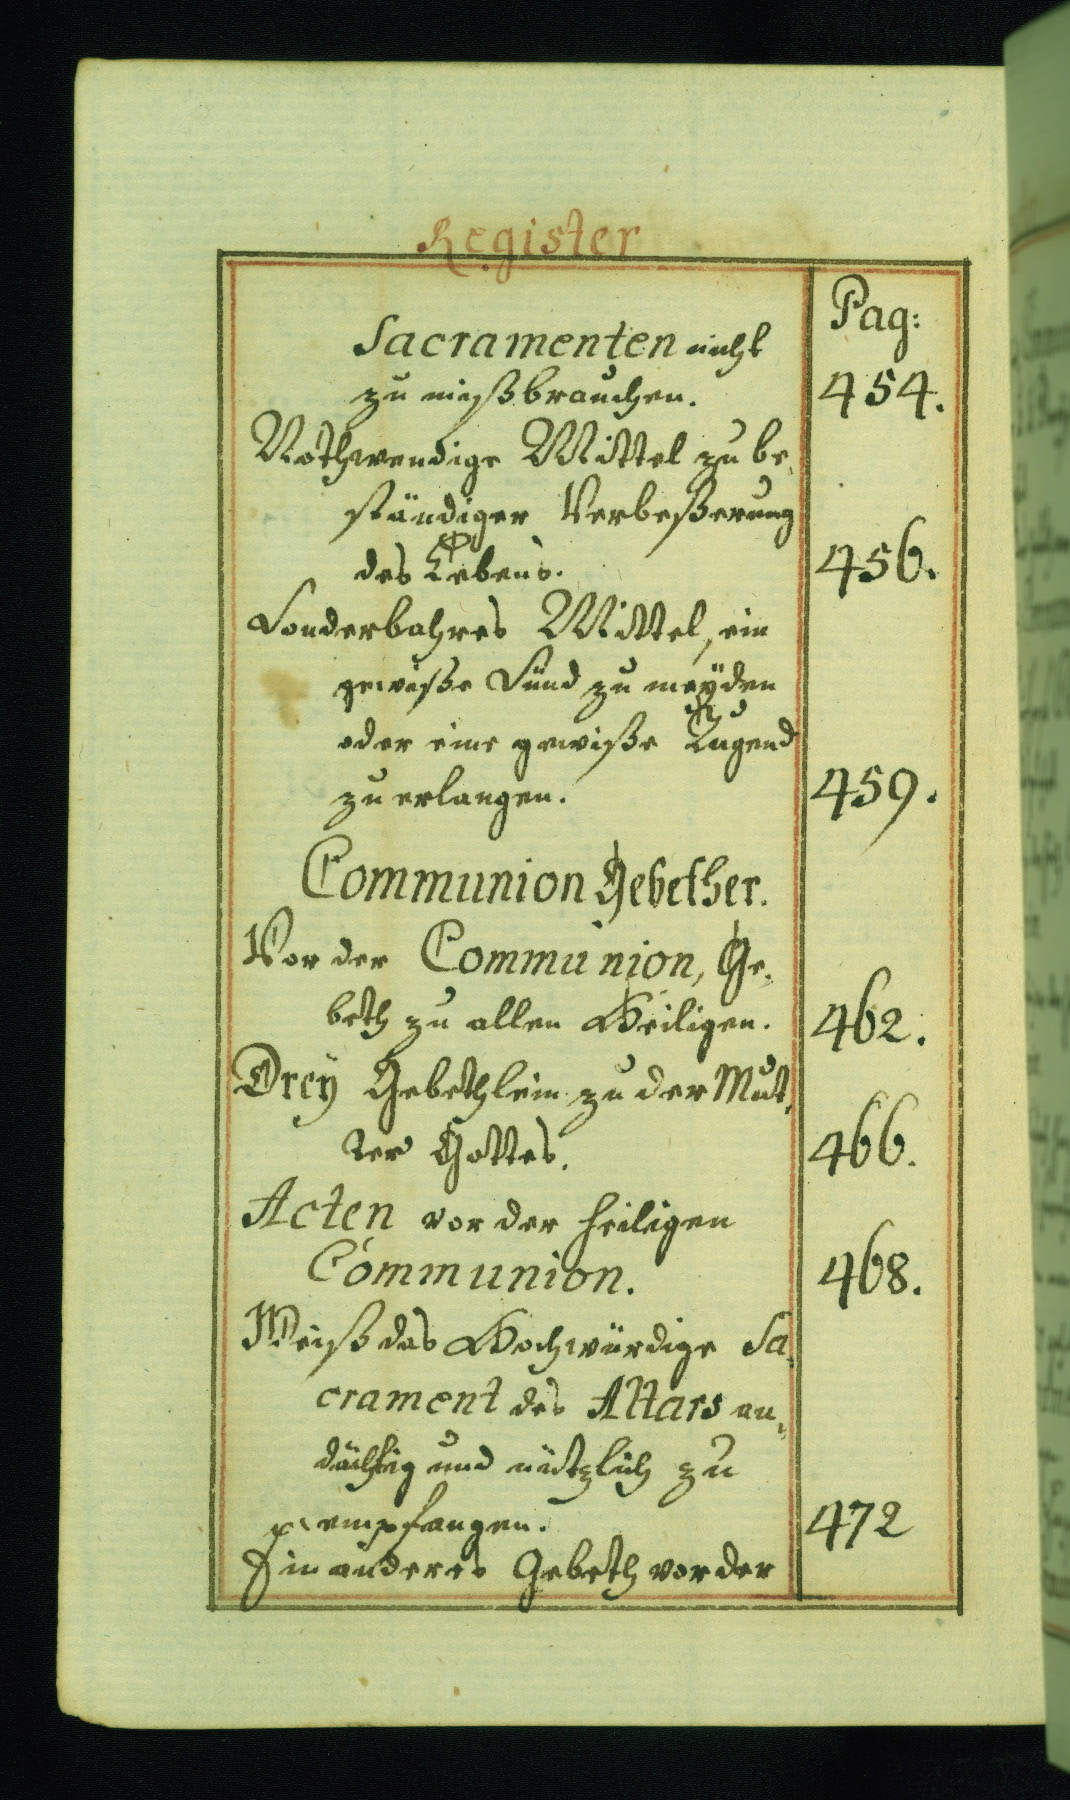 Register
Pag:
Sacramenten nicht
zu mißbrauchen. 454.
Nothwendige Mittel zu be-
ständiger Verbeßerung
des Lebens. 456.
Sonderbahres Mittel, ein
gewiße Sünd zu meÿden
oder eine gewiße Tugend
zu erlangen. 459.
Communion Gebether.
Vor der Communion, Ge-
beth zu allen Heiligen. 462.
Dreÿ Gebethlein zu der Mut-
ter Gottes. 466.
Acten vor der heiligen
Communion. 468.
Weiß das Hochwürdige Sa-
crament des Altars an-
dächtig und nützlich zu
empfangen. 472
Ein anderes Gebeth vor der